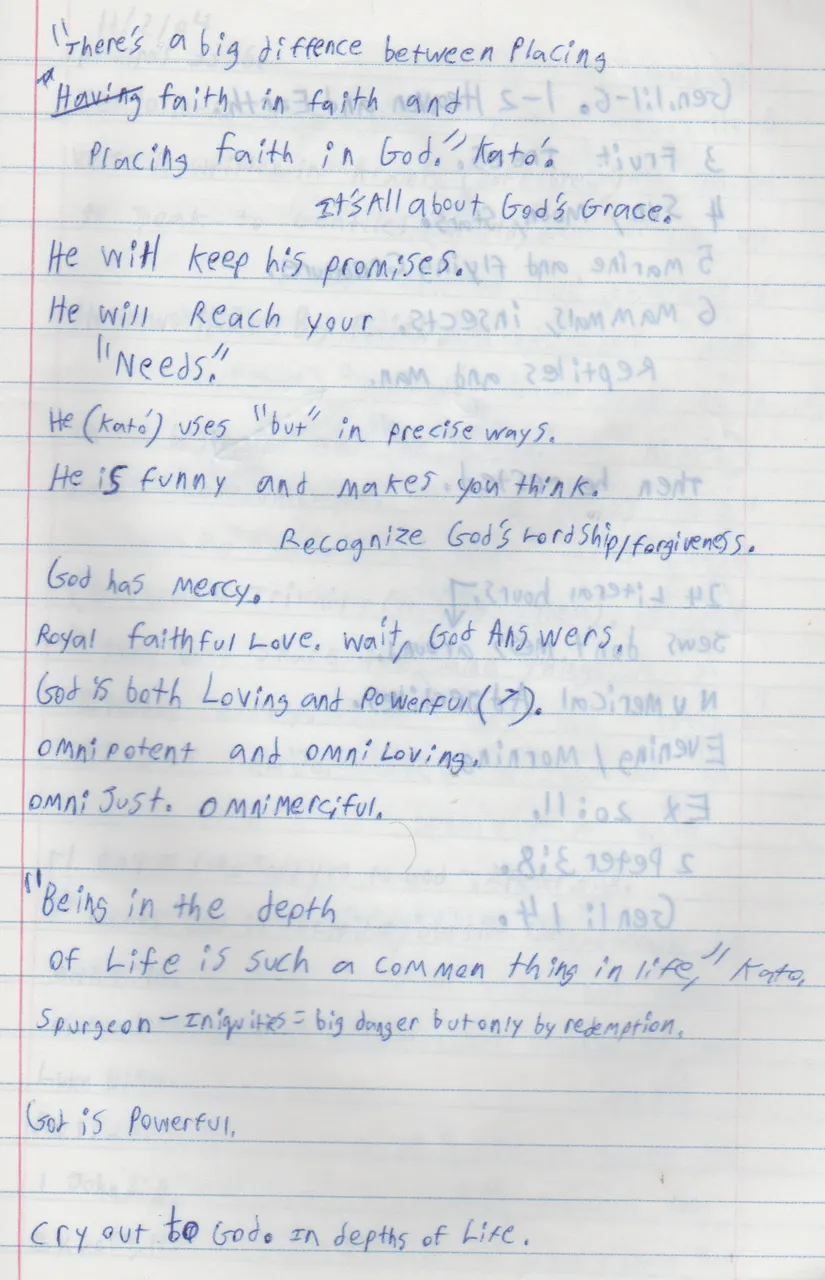 "There's a big diffence between Placing
* Having faith in faith and
Placing faith in God." Kató.
It's All about God's Grace.
He will keep his promises.
He will Reach your
"Needs."
He (Kató) uses "but" in precise ways.
He is funny and makes you think.
Recognize God's Lordship/forgiveness.
God has mercy.
Royal faithful Love. wait, God Answers.
God is both Loving and Powerful (7).
omnipotent and omni Loving.
omni Just. omnimerciful.
"Being in the depth
of Life is such a common thing in life," Kato.
Spurgeon - Iniquities = big danger but only by redemption.
God is Powerful.
Cry out to God. In depths of Life.